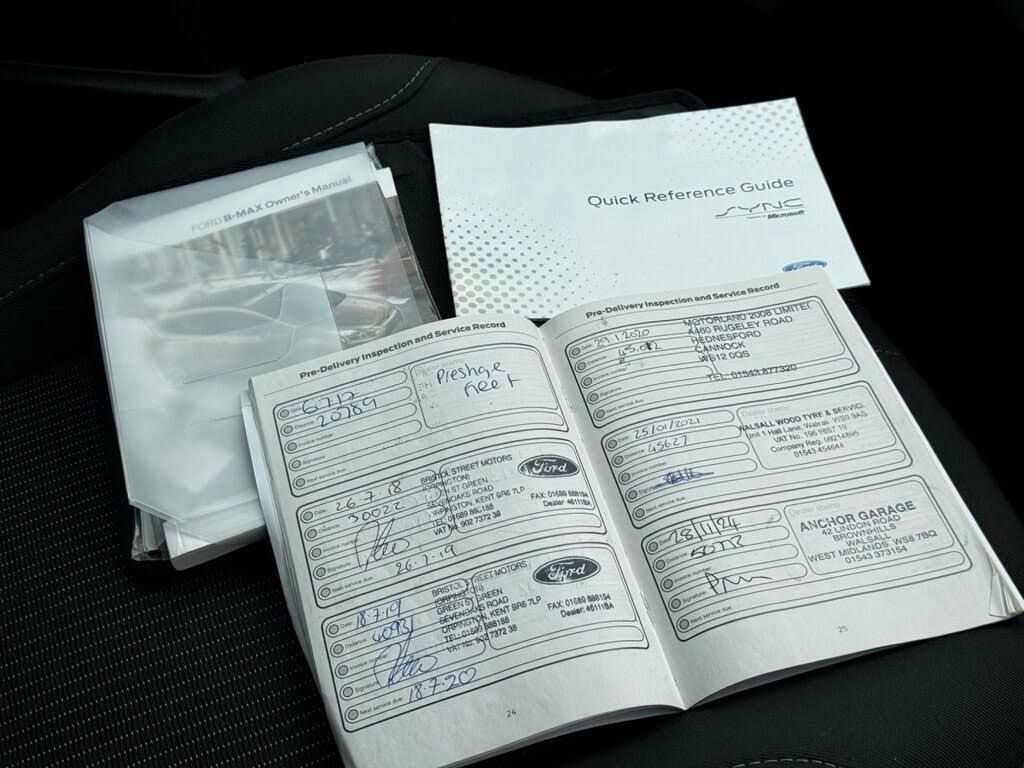 FORD B-MAX Owner's Manual
Quick Reference Guide
SYNC
Powered by Microsoft
Ford
Pre-Delivery Inspection and Service Record
Date: 6.7.17
Distance: 20789
Invoice number:
Signature:
Next service due:
Dealer stamp
Prestige
Fleet
Date: 26.7.18
Distance: 30022
Invoice number:
Signature:
Next service due: 26.7.19
BRISTOL STREET MOTORS
(ORPINGTON)
GREEN ST GREEN
SEVENOAKS ROAD
ORPINGTON, KENT BR6 7LP
TEL: 01689 888188
VAT No. 902 7372 38
Ford
FAX: 01689 888194
Dealer: 46111BA
Date: 18.7.19
Distance: 40931
Invoice number:
Signature:
Next service due: 18.7.20
BRISTOL STREET MOTORS
(ORPINGTON)
GREEN ST GREEN
SEVENOAKS ROAD
ORPINGTON, KENT BR6 7LP
TEL: 01689 888188
VAT No. 902 7372 38
Ford
FAX: 01689 888194
Dealer: 46111BA
24
Pre-Delivery Inspection and Service Record
Date: 29.1.2020
Distance:
Invoice number:
Signature:
Next service due:
MOTORLAND 2008 LIMITED
A460 RUGELEY ROAD
HEDNESFORD
CANNOCK
WS12 0QS
TEL: 01543 877320
Date: 25/01/2021
Distance: 45627
Invoice number:
Signature:
Next service due:
Dealer stamp
WALSALL WOOD TYRE & SERVICE
Unit 1 Hall Lane, Walsall, WS9 9AS
VAT No. 196 9897 19
Company Reg. 09214895
01543 454644
Date: 28/11/24
Distance: 50773
Invoice number:
Signature:
Next service due:
Dealer stamp
ANCHOR GARAGE
42 LINDON ROAD
BROWNHILLS
WALSALL
WEST MIDLANDS WS8 7BQ
01543 373154
25